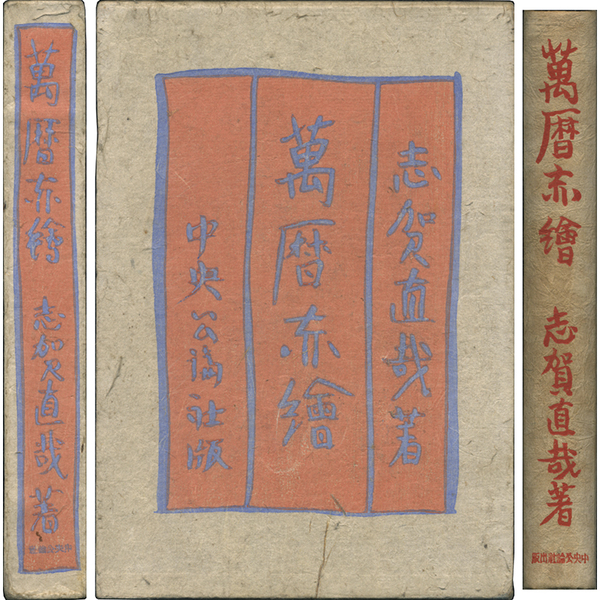 萬暦赤繪 志賀直哉著
志賀直哉著
萬暦赤繪
中央公論社版
萬暦赤繪 志賀直哉著
中央公論社出版